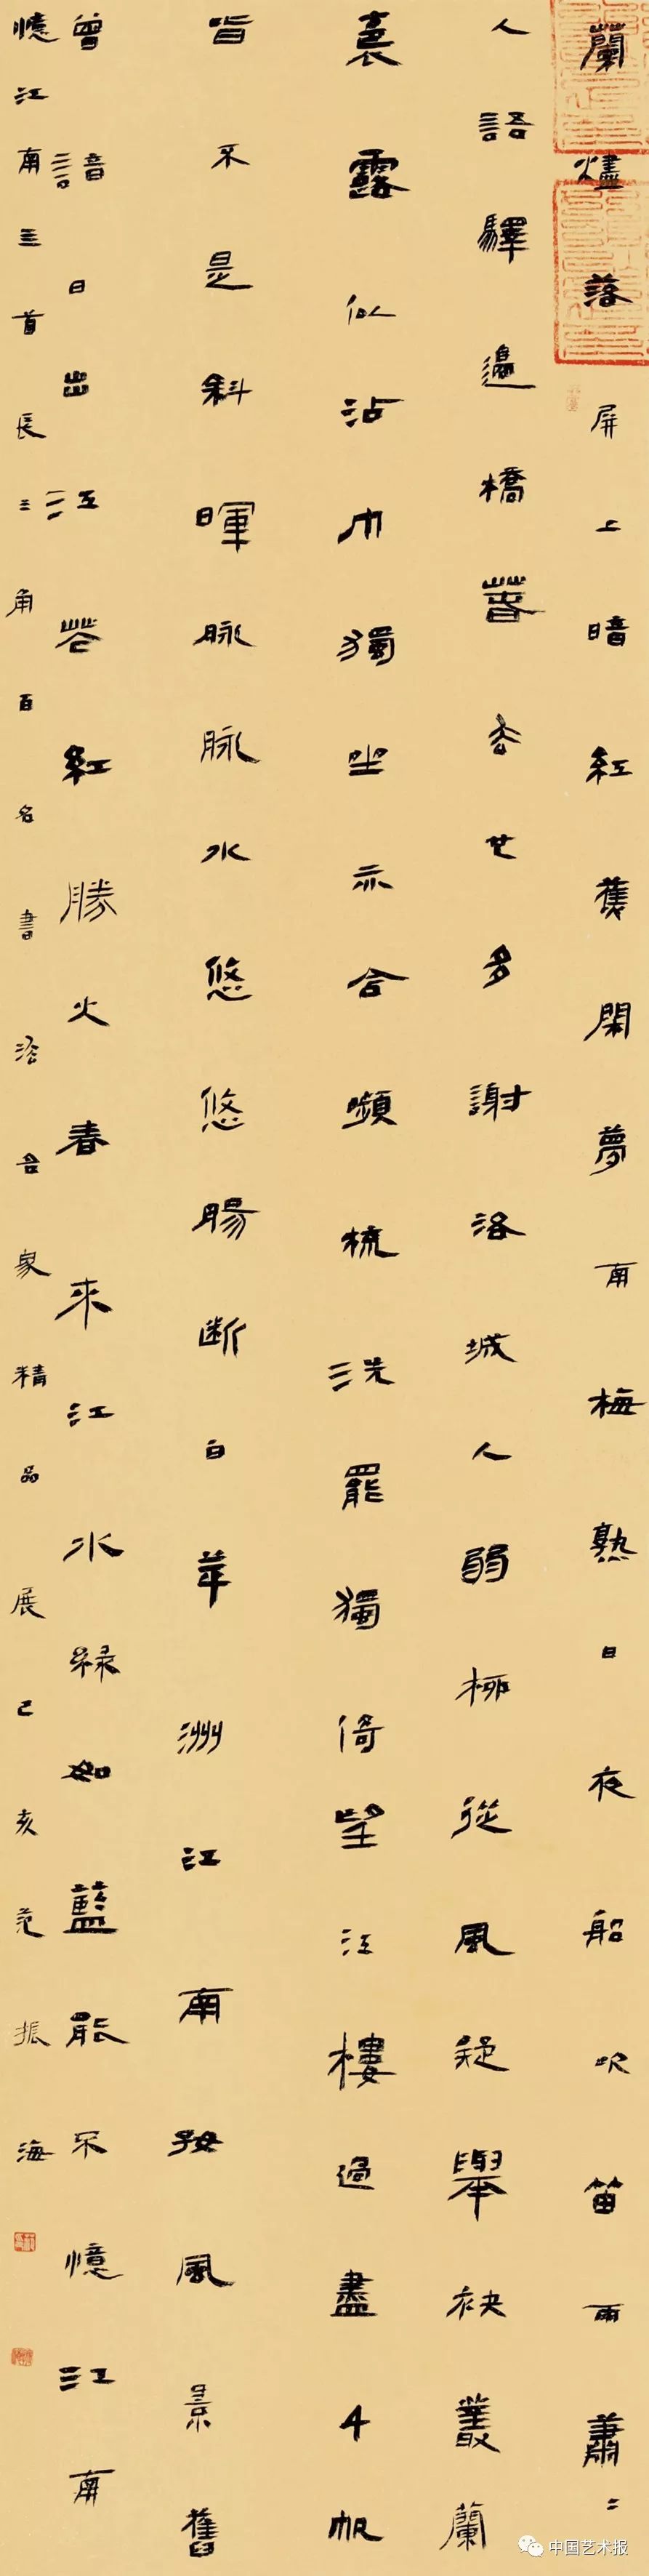 蘭燼落屏上暗紅蕉閑夢南梅熟日夜船吹笛雨蕭〻
人語驛邊橋春去也多謝洛城人弱柳從風疑舉袂叢蘭
裛露似沾巾獨坐亦含嚬梳洗罷獨倚望江樓過盡千帆
皆不是斜暉脉脉水悠悠腸斷白苹洲江南好風景舊
曾諳日出江花紅勝火春來江水緑如藍能不憶江南
憶江南三首長三角百名書法名家精品展己亥范振海
中国艺术报